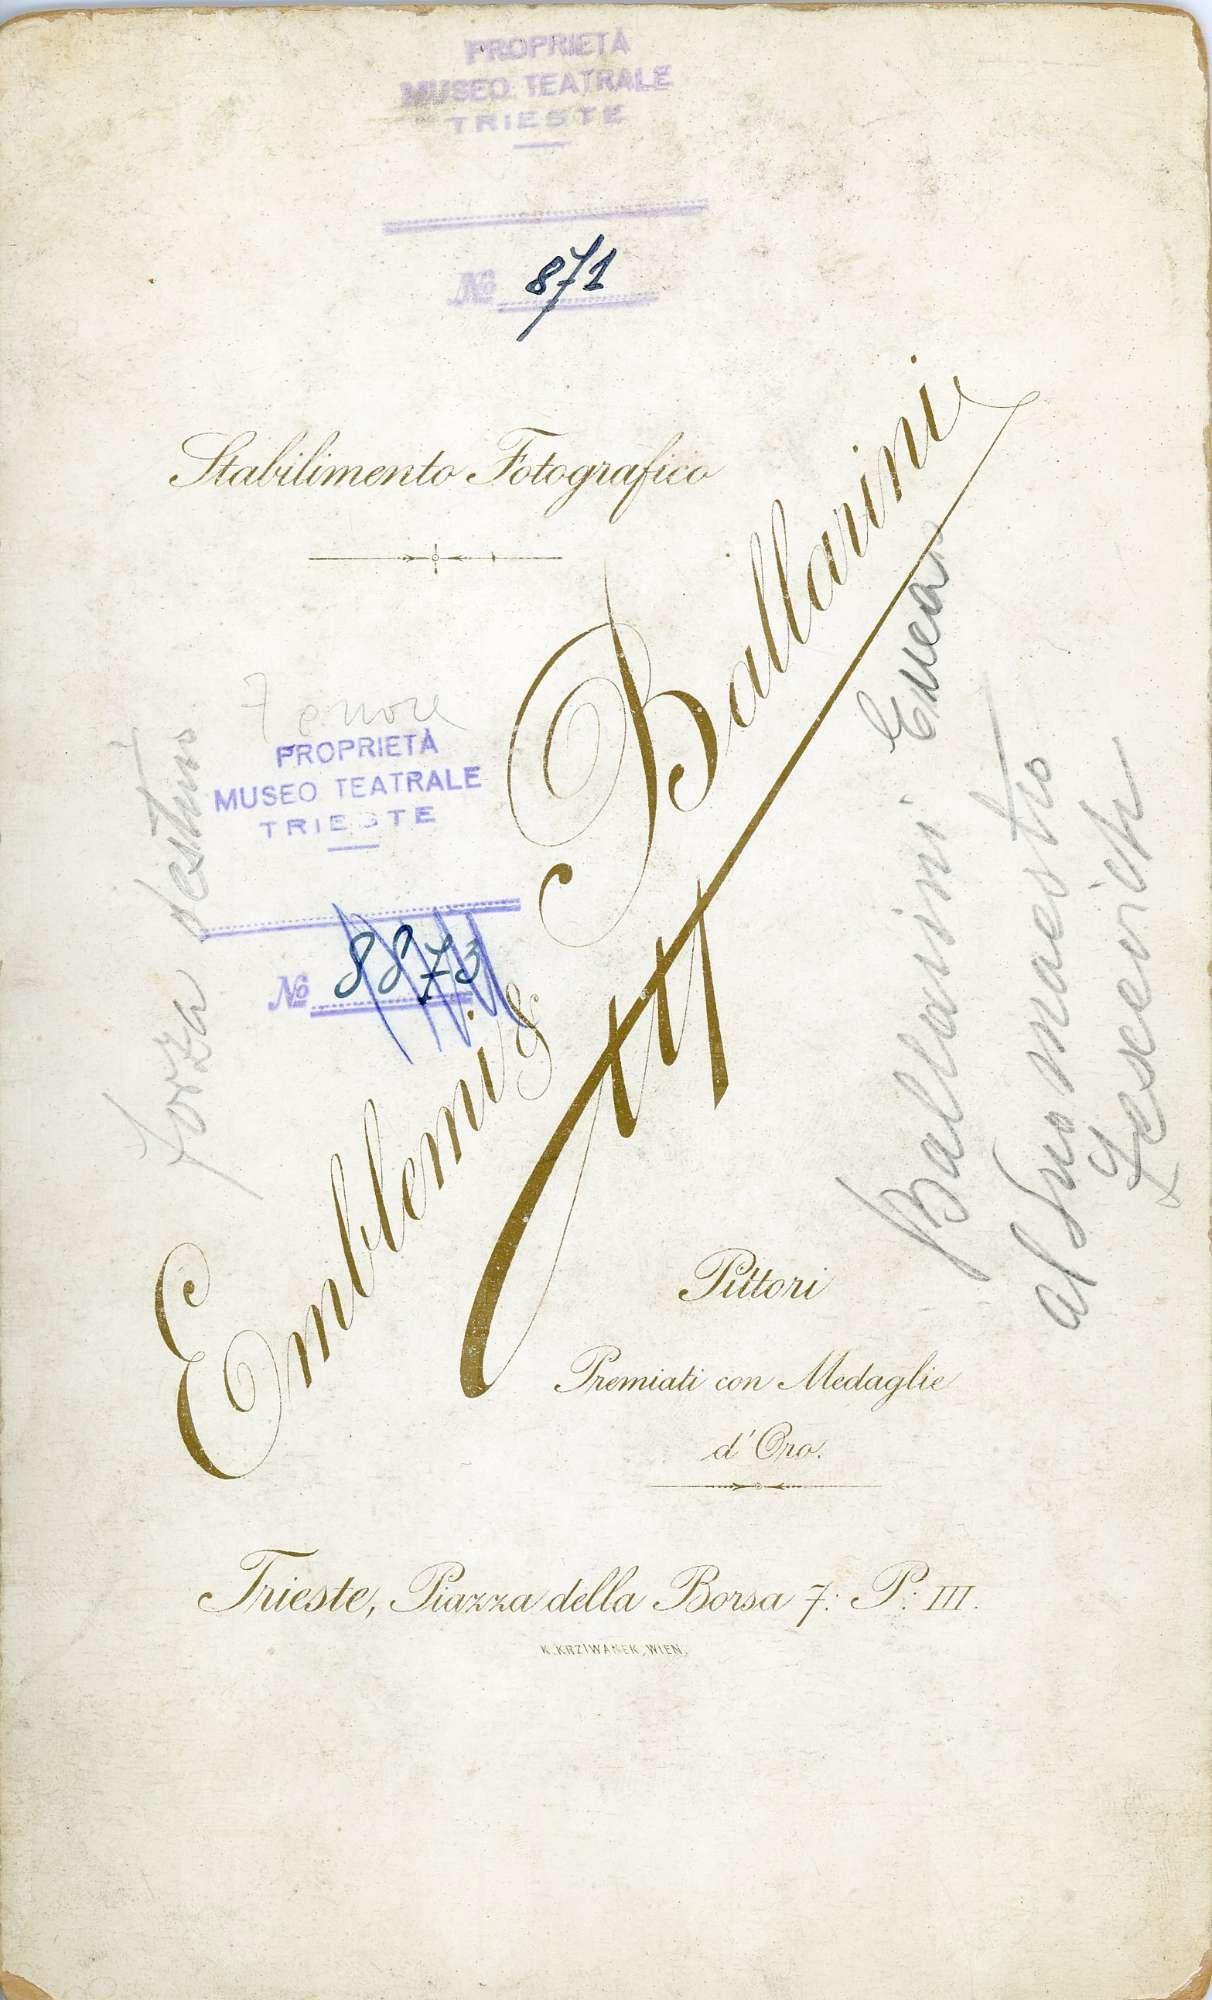 PROPRIETÀ
MUSEO TEATRALE
TRIESTE
№ 871
Stabilimento Fotografico
Emblemi & Ballarini
Tenore
PROPRIETÀ
MUSEO TEATRALE
TRIESTE
№ 8873
forza destino
Ballarini
al suo maestro
Pittori
Premiati con Medaglie
d'Oro.
Trieste, Piazza della Borsa 7: P: III.
K. KRZIWANEK, WIEN.